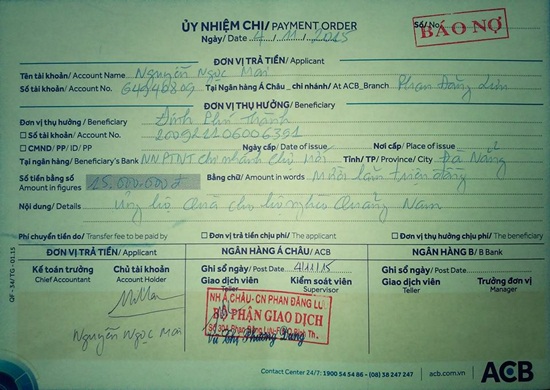 ỦY NHIỆM CHI/ PAYMENT ORDER
Số/ No
BÁO NỢ
Ngày/ Date 4/11/2015
ĐƠN VỊ TRẢ TIỀN/ Applicant
Tên tài khoản/ Account Name Nguyễn Ngọc Mai
Số tài khoản/ Account No. Tại Ngân hàng Á Châu_ chi nhánh/ At ACB_Branch Phan Đăng Lưu
ĐƠN VỊ THỤ HƯỞNG/ Beneficiary
Đơn vị thụ hưởng / Beneficiary Đinh Phú Thành
Số tài khoản/ Account No. 200921106006391
CMND/ PP/ ID/ PP Ngày cấp/ Date of issue Nơi cấp/ Place of issue
Tại ngân hàng/ Beneficiary's Bank NN PTNT chi nhánh Chợ Mới Tỉnh/ TP/ Province/ City Đà Nẵng
Số tiền bằng số Bằng chữ/ Amount in words Mười lăm triệu đồng
Amount in figures 15.000.000đ
Nội dung/ Details Ủng hộ Quà cho hộ nghèo Quảng Nam
Phí chuyển tiền do/ Transfer fee to be paid by Đơn vị trả tiền chịu phí/ The applicant Đơn vị thụ hưởng chịu phí/ The beneficiary
ĐƠN VỊ TRẢ TIỀN/ Applicant
NGÂN HÀNG Á CHÂU/ ACB
NGÂN HÀNG B/ B Bank
Kế toán trưởng Chủ tài khoản
Chief Accountant Account Holder
Nguyễn Ngọc Mai
Ghi sổ ngày/ Post Date 4/11/15
Giao dịch viên Kiểm soát viên
Teller Supervisor
NH Á CHÂU-CN PHAN ĐĂNG LƯU
BỘ PHẬN GIAO DỊCH
Vũ Thị Phương Dung
Ghi sổ ngày/ Post Date
Giao dịch viên Trưởng đơn vị
Teller Manager
QF - 34/TG - 01.15
Contact Center 24/7: 1900 54 54 86 - (08) 38 247 247 acb.com.vn ACB